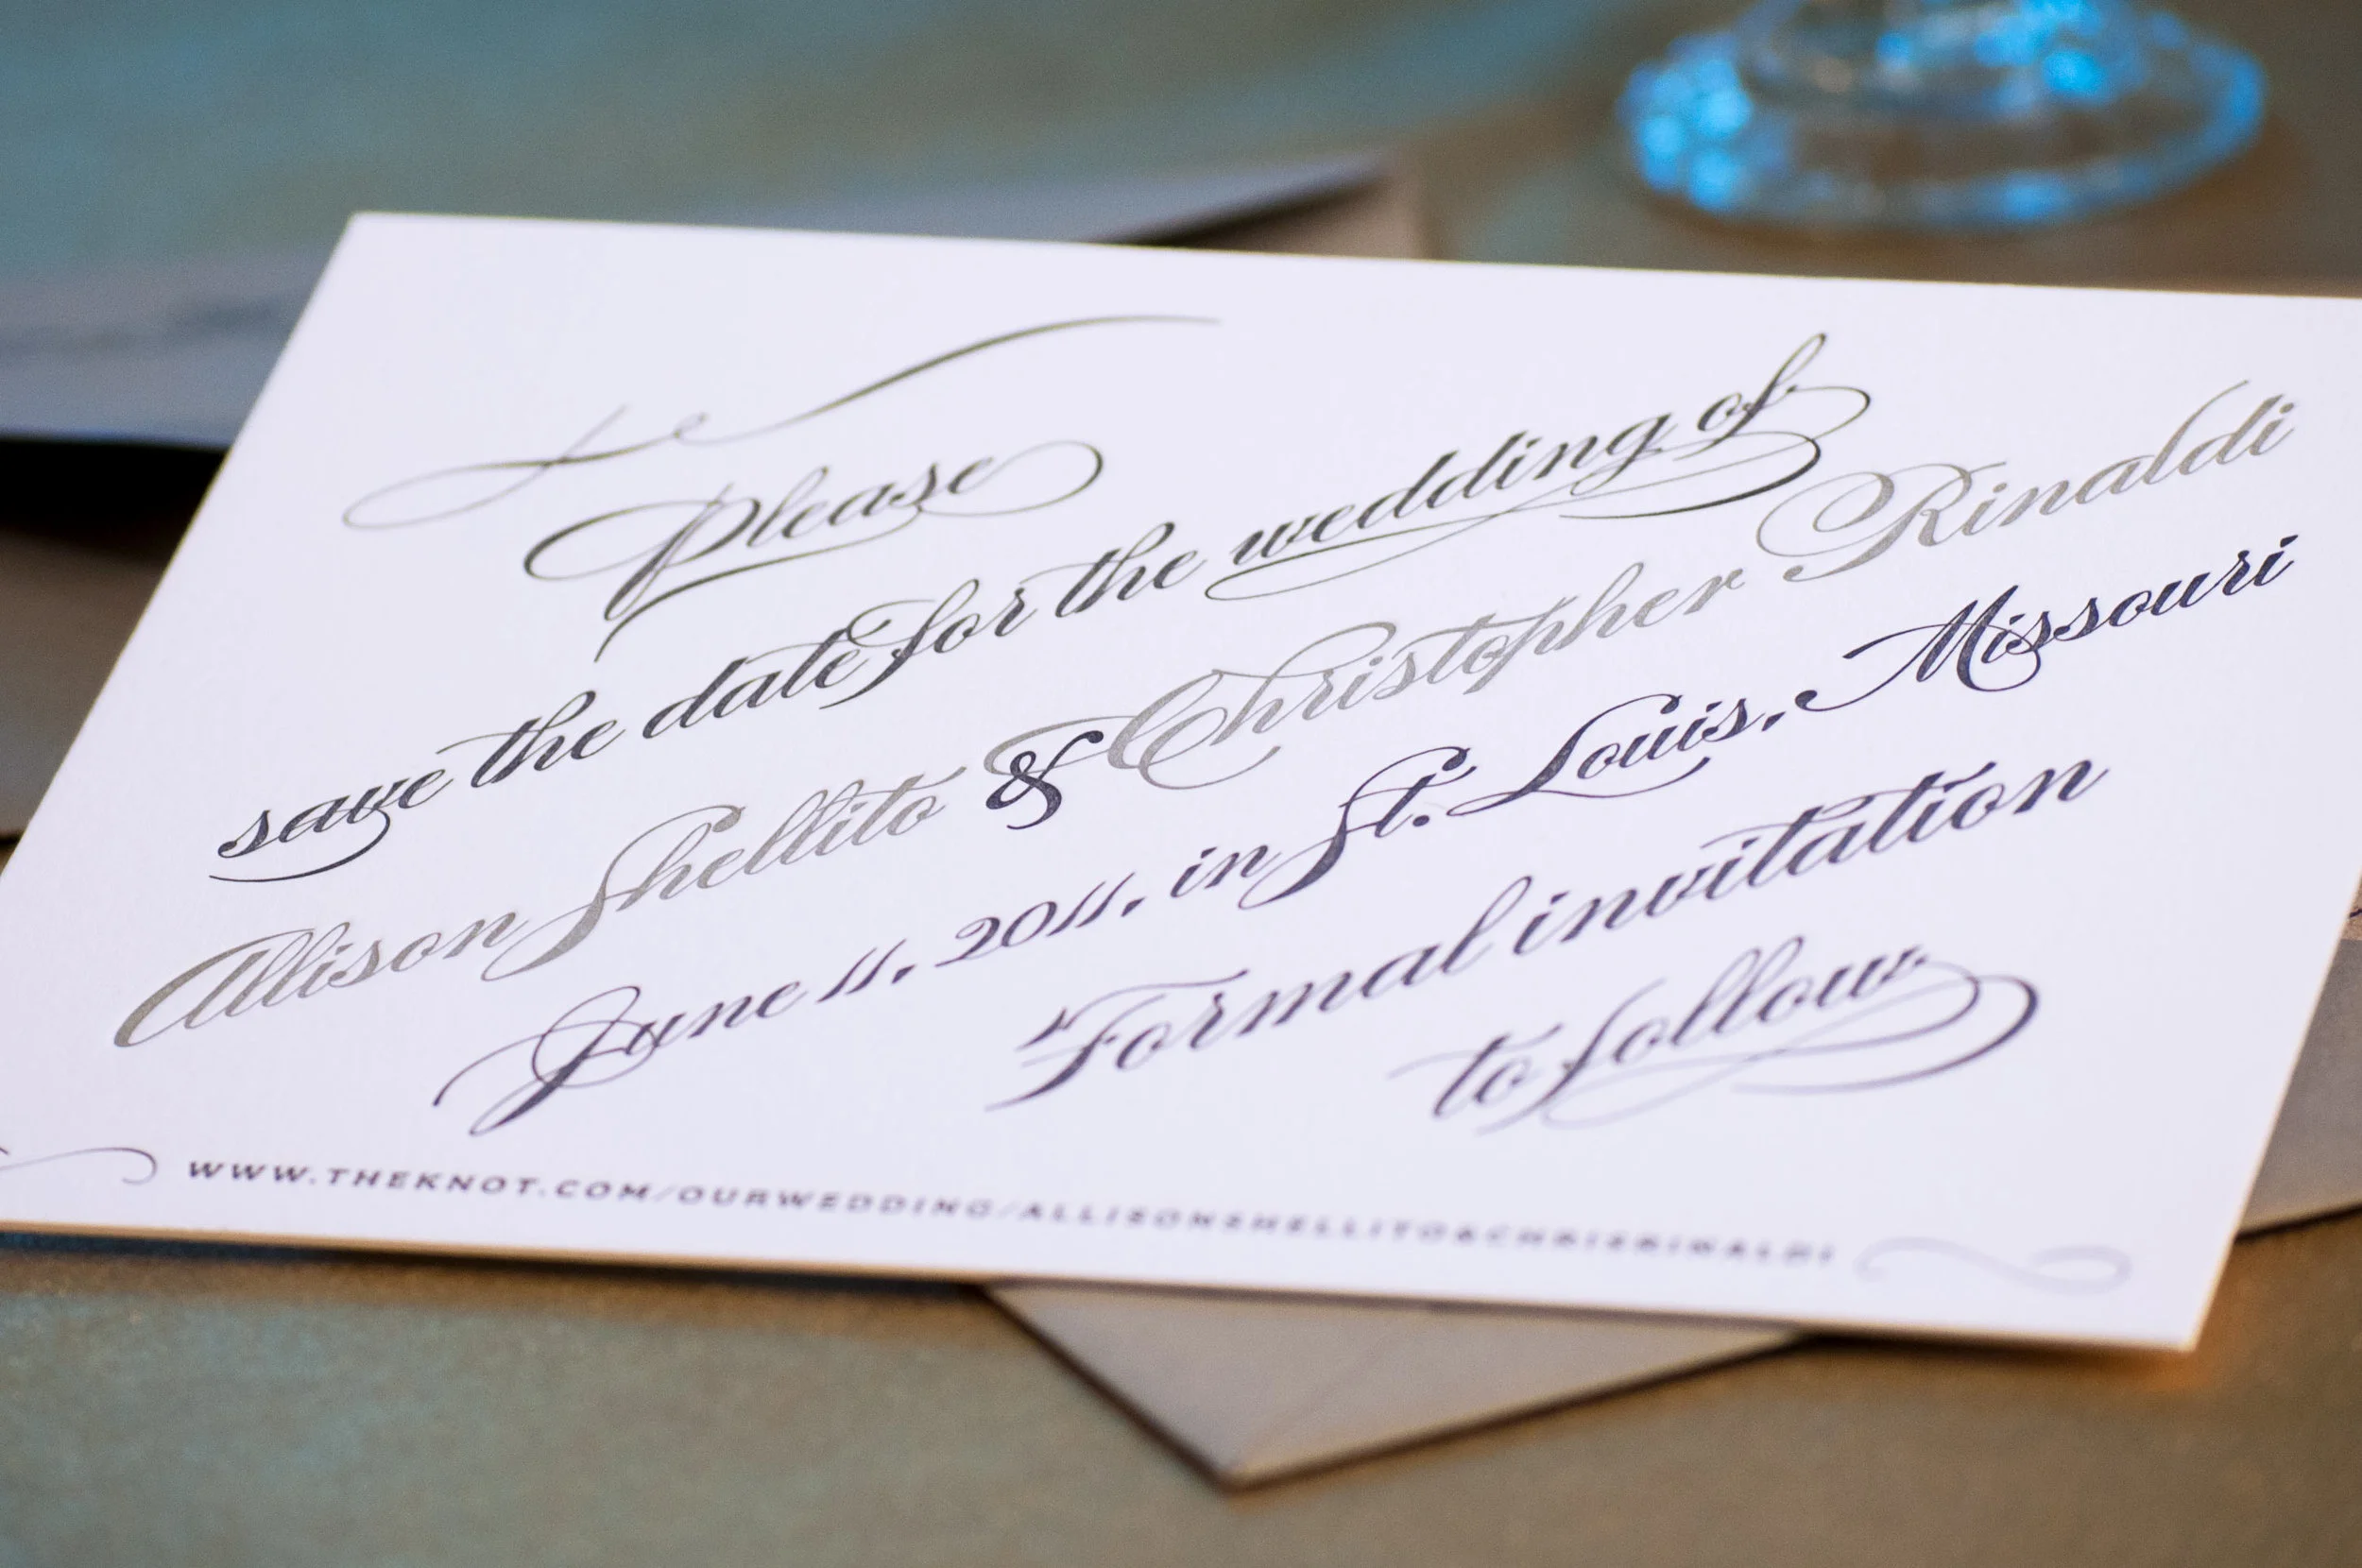 Please
save the date for the wedding of
Allison Shellito & Christopher Rinaldi
June 11, 2011, in St. Louis, Missouri
Formal invitation
to follow
WWW.THEKNOT.COM/OURWEDDING/ALLISONSHELLITO&CHRISRINALDI